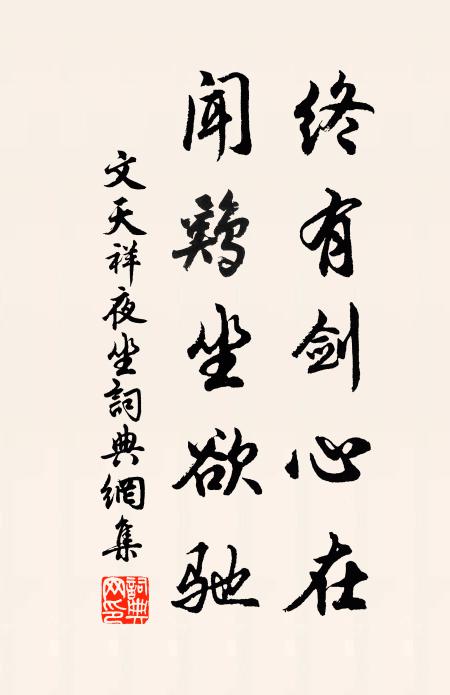 终有剑心在
闻鸡坐欲驰
文天祥夜坐詞典網集
詞典网印